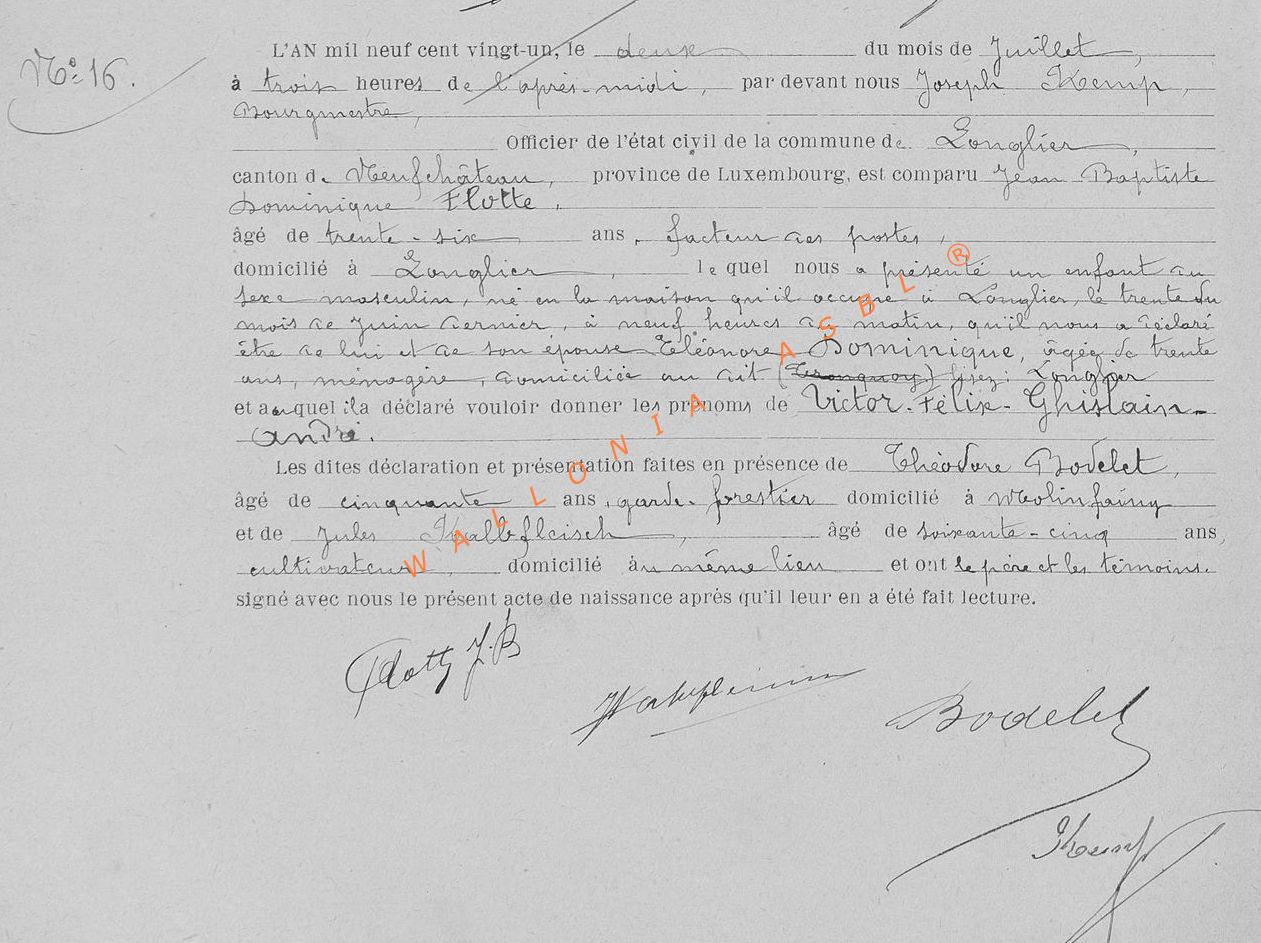 N° 16.
L'AN mil neuf cent vingt-un, le deux du mois de Juillet,
à trois heures de l'après-midi, par devant nous Joseph Kemp,
Bourgmestre,
Officier de l'état civil de la commune de Longlier,
canton de Neufchâteau, province de Luxembourg, est comparu Jean Baptiste
Dominique Flotte,
âgé de trente-six ans, facteur des postes,
domicilié à Longlier, lequel nous a présenté un enfant du
sexe masculin, né en la maison qu'il occupe à Longlier, le trente du
mois de Juin dernier, à neuf heures du matin, qu'il nous a déclaré
être de lui et de son épouse Eléonore Dominique, âgée de trente
ans, ménagère, domiciliée au dit (Tronquoy) lisez: Longlier
et auquel il a déclaré vouloir donner les prénoms de Victor-Félix-Ghislain-
André.
Les dites déclaration et présentation faites en présence de Théodore Bodelet,
âgé de cinquante ans, garde-forestier domicilié à Molinfaing
et de Jules Kalbfleisch, âgé de soixante-cinq ans,
cultivateur, domicilié au même lieu et ont le père et les témoins
signé avec nous le présent acte de naissance après qu'il leur en a été fait lecture.
Flotte J.B
Bodelet
Kemp
WALLONIA ASBL ®